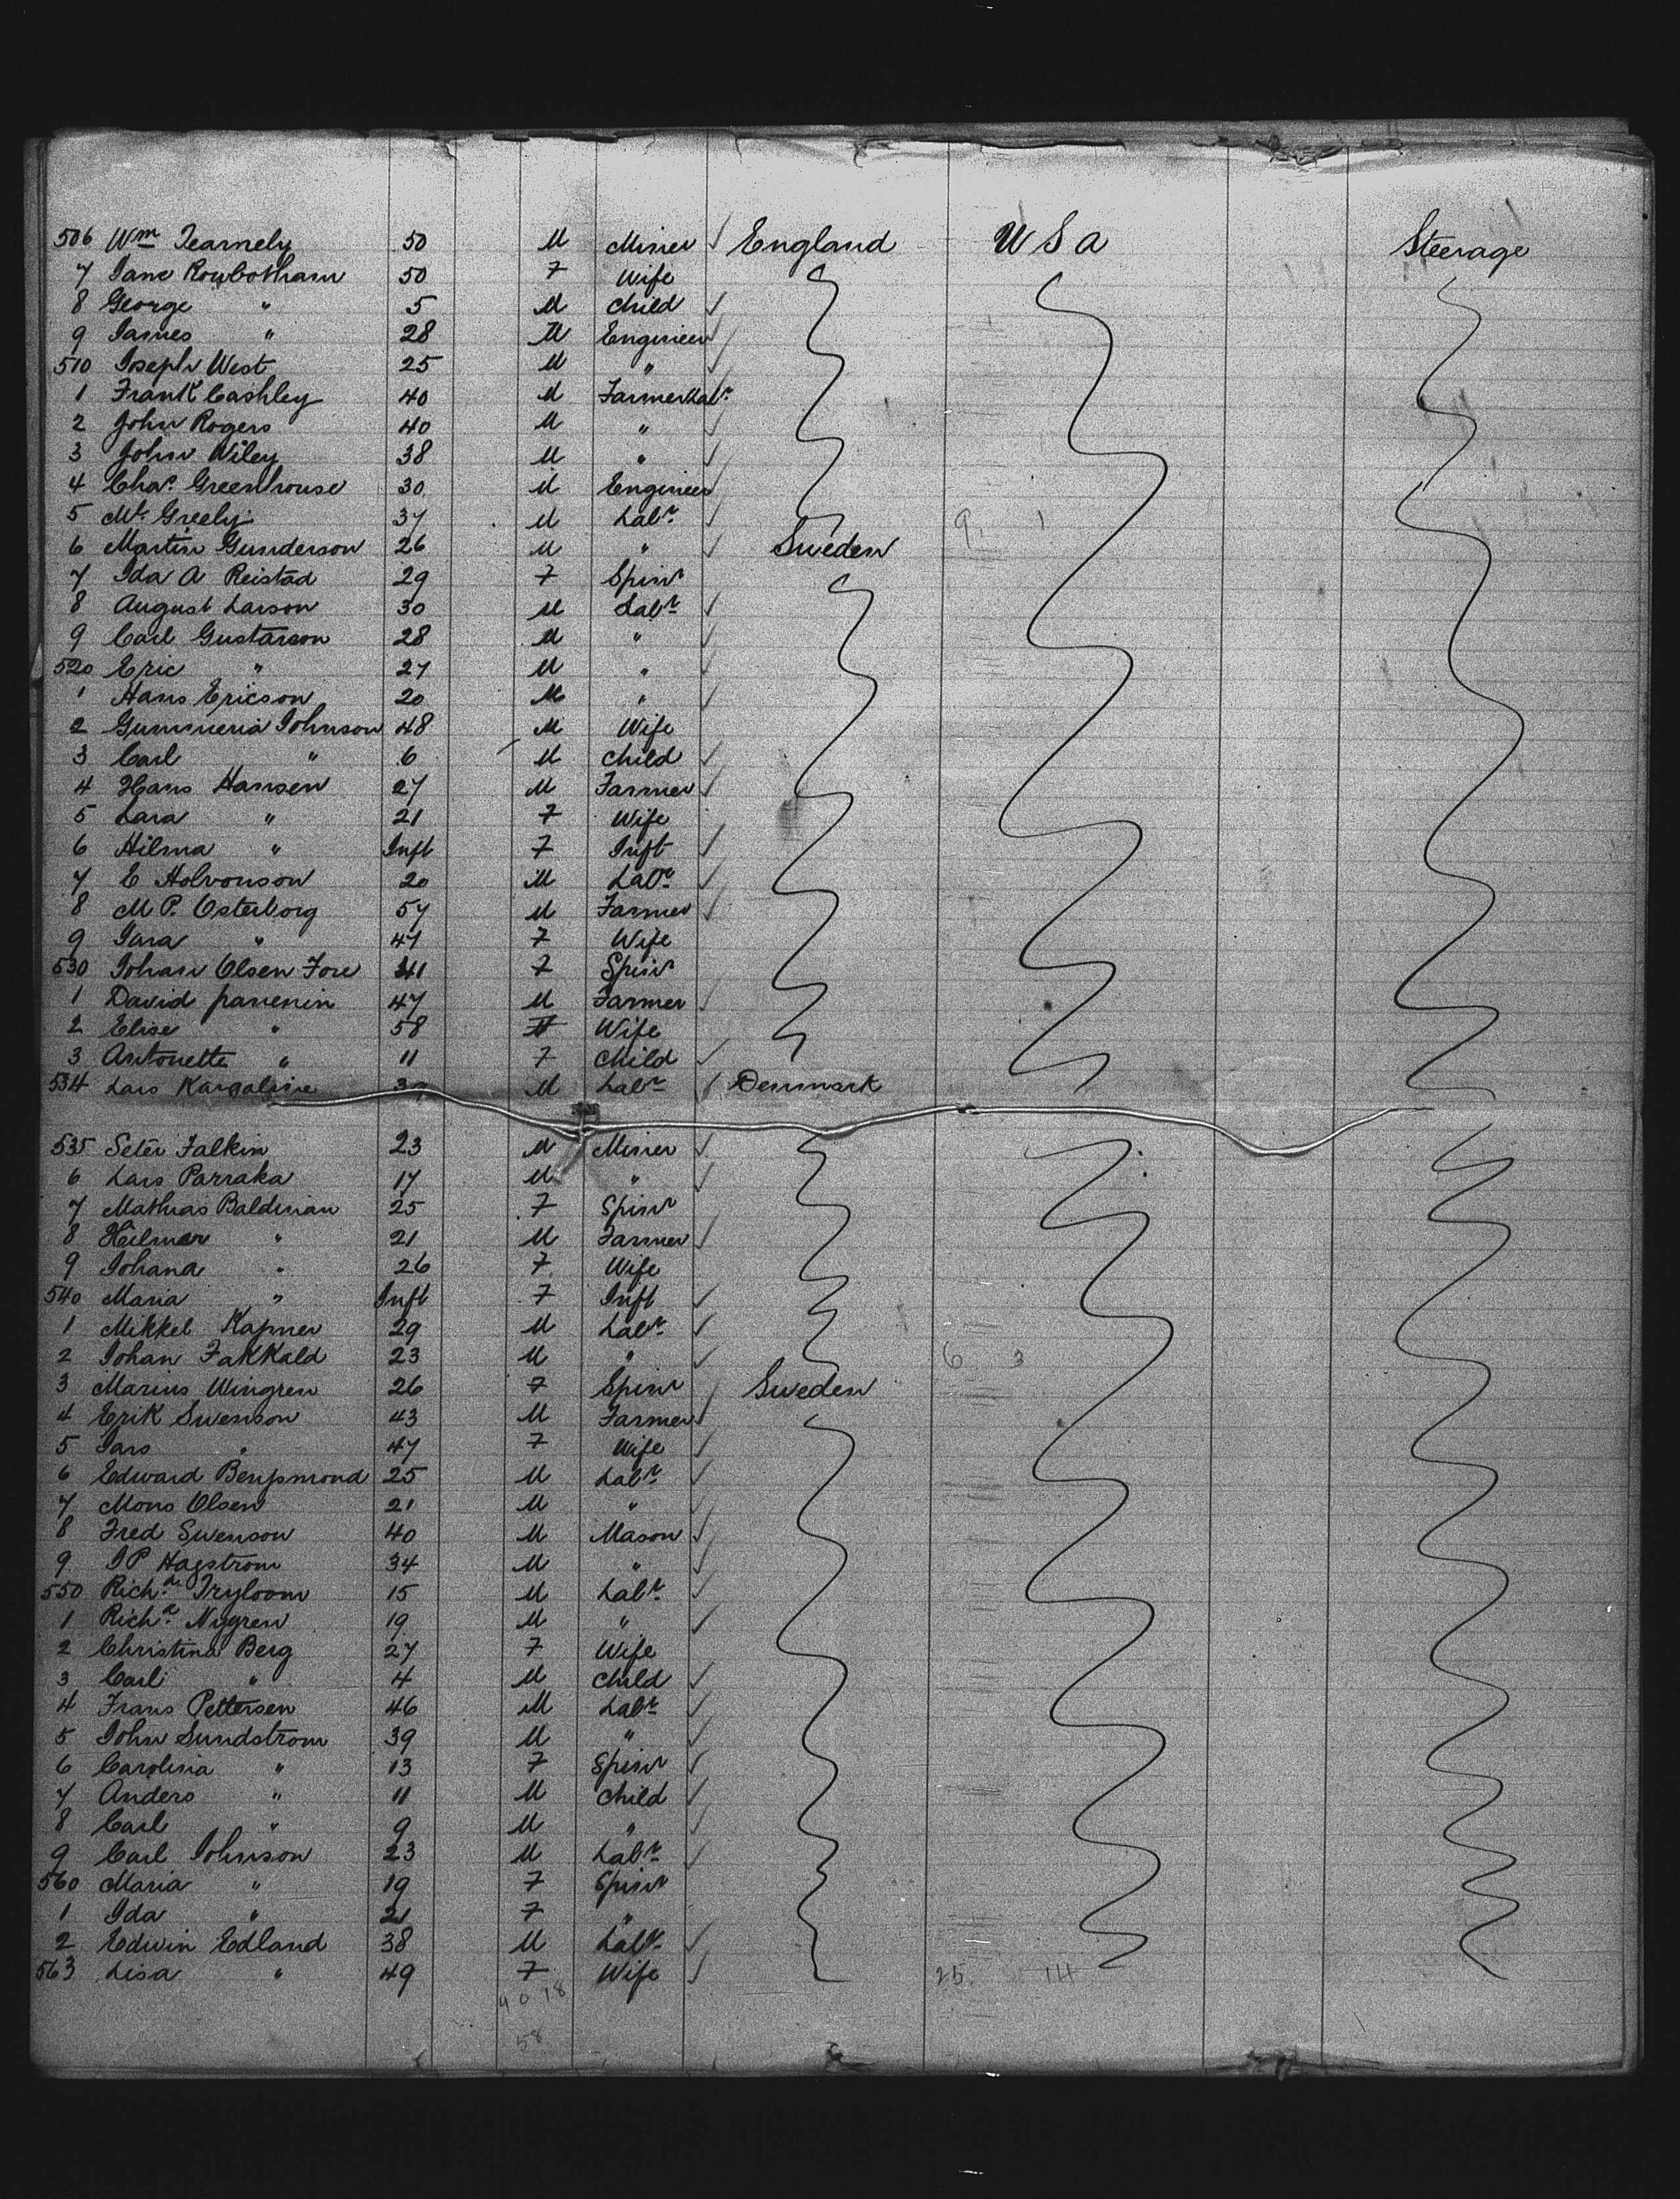 506 Wm Tearnely 50 M Miner England U S A Steerage
7 Jane Rowbotham 50 F Wife
8 George " 5 M Child
9 James " 28 M Engineer
510 Joseph West 25 M "
1 Frank Cashley 40 M Farmer Labr
2 John Rogers 40 M "
3 John Wiley 38 M "
4 Chas Greenhouse 30 M Engineer
5 Mt Greely 37 M Labr 9. 1
6 Martin Gunderson 26 M " Sweden
7 Ida A Reistad 29 F Spinr
8 August Larson 30 M Labr
9 Carl Gustarson 28 M "
520 Eric " 27 M "
1 Hans Ericson 20 M "
2 Johnson 48 M Wife
3 Carl " 6 M Child
4 Hans Hansen 27 M Farmer
5 Lara " 21 F Wife
6 Hilma " Inft F Inft
7 E Holvonson 20 M Labr
8 M P. Osterborg 57 M Farmer
9 Sara " 47 F Wife
530 Johan Olsen Fore 41 F Spinr
1 David 47 M Farmer
2 Elise " 58 F Wife
3 Antonette " 11 F Child
534 Lars M Labr Denmark
535 Seter Falkin 23 M Miner
6 Lars Parraka 17 M "
7 Mathias Baldinian 25 F Spinr
8 Hilmar " 21 M Farmer
9 Johana " 26 F Wife
540 Maria " Inft F Inft
1 Mikkel Kapner 29 M Labr
2 Johan Fakkald 23 M " 6 3
3 Marius Wingren 26 F Spinr Sweden
4 Erik Swenson 43 M Farmer
5 Lars " 47 F Wife
6 Edward 25 M Labr
7 Mons Olsen 21 M "
8 Fred Swenson 40 M Mason
9 J P Hagstrom 34 M "
550 Richd Tryloom 15 M Labr
1 Richd Nygren 19 M "
2 Christina Berg 27 F Wife
3 Carl " 4 M Child
4 Frans Pettersen 46 M Labr
5 John Sundstrom 39 M "
6 Carolina " 13 F Spinr
7 Anders " 11 M Child
8 Carl " 9 M "
9 Carl Johnson 23 M Labr
560 Maria " 19 F Spinr
1 Ida " 21 F "
2 Edwin Edland 38 M Labr
563 Lisa " 49 F Wife 25. 14
40 18
58